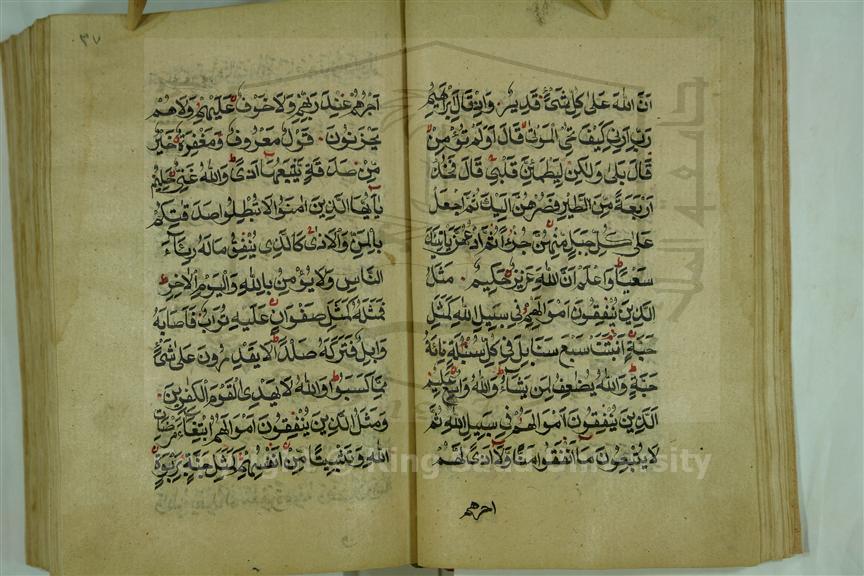 ان الله على كل شئ قدير واذ قال ابرهيم
رب ارني كيف تحي الموتى قال اولم تؤمن
قال بلى ولكن ليطمئن قلبي قال فخذ
اربعة من الطير فصرهن اليك ثم اجعل
على كل جبل منهن جزءا ثم ادعهن ياتينك
سعيا واعلم ان الله عزيز حكيم مثل
الذين ينفقون اموالهم في سبيل الله كمثل
حبة انبتت سبع سنابل في كل سنبلة مائة
حبة والله يضعف لمن يشاء والله واسع عليم
الذين ينفقون اموالهم في سبيل الله ثم
لا يتبعون ما انفقوا منا ولا اذى لهم
اجرهم
٣٧
اجرهم عند ربهم ولا خوف عليهم ولا هم
يحزنون قول معروف ومغفرة خير
من صدقة يتبعها اذى والله غني حليم
يايها الذين امنوا لا تبطلوا صدقتكم
بالمن والاذى كالذي ينفق ماله رئاء
الناس ولا يؤمن بالله واليوم الاخر
فمثله كمثل صفوان عليه تراب فاصابه
وابل فتركه صلدا لا يقدرون على شئ
مما كسبوا والله لا يهدي القوم الكفرين
ومثل الذين ينفقون اموالهم ابتغاء مرضات
الله وتثبيتا من انفسهم كمثل جنة بربوة
King Saud University